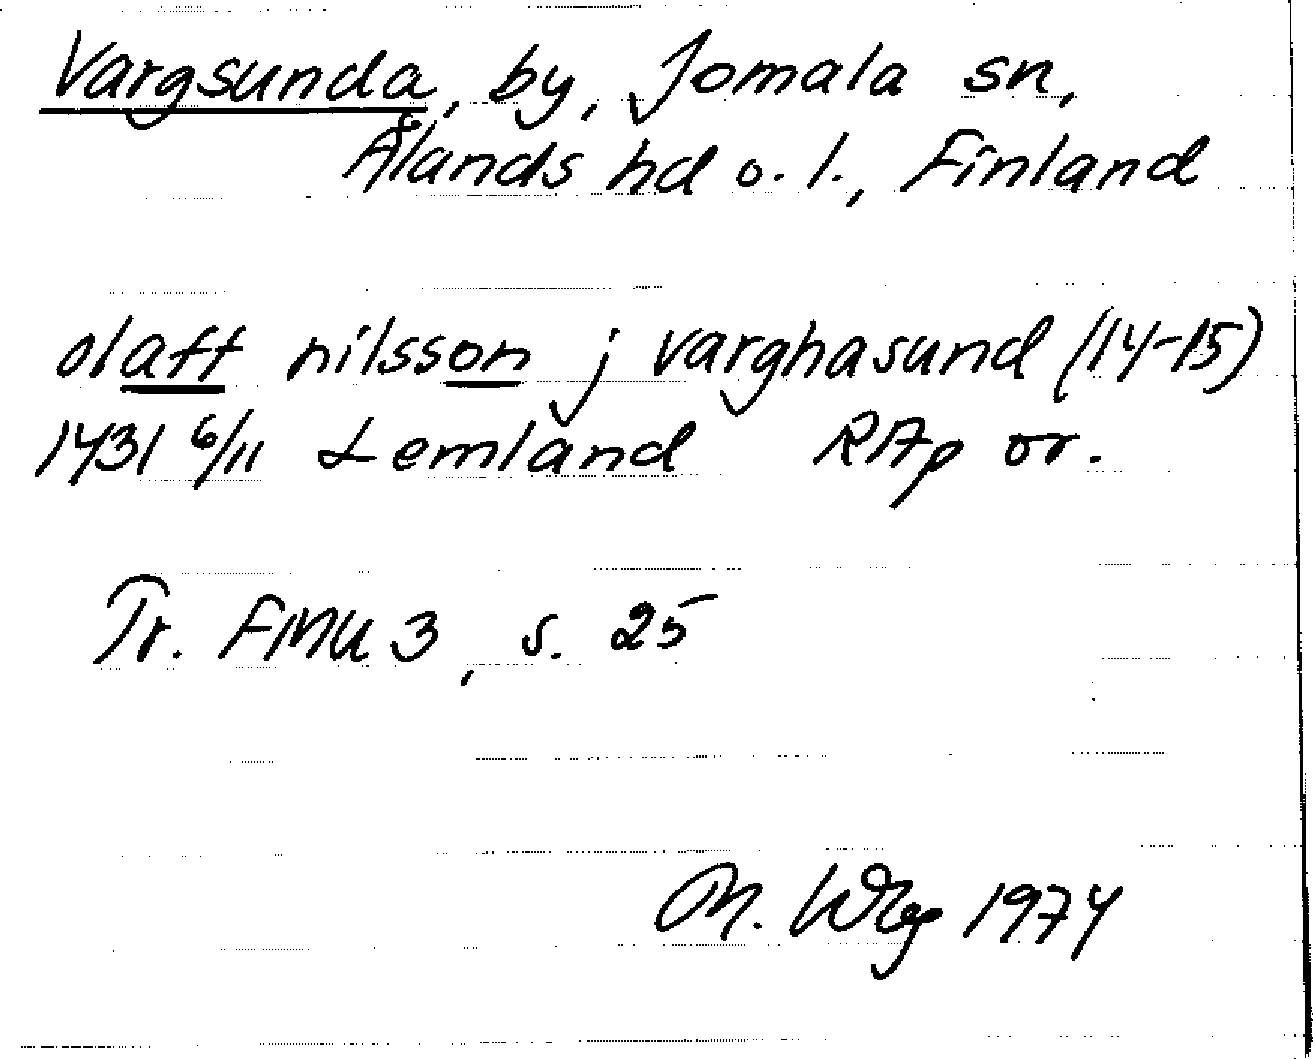 Vargsunda, by, Jomala sn,
Ålands hd o. l., Finland
olaff nilsson j varghasund (14-15)
1431 6/11 Lemland RAp or.
Tr. FMU 3, s. 25
M. Wbg 1974